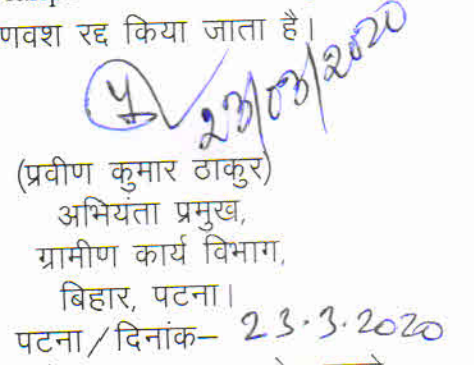 णवश रद्द किया जाता है।
23/03/2020
(प्रवीण कुमार ठाकुर)
अभियंता प्रमुख,
ग्रामीण कार्य विभाग,
बिहार, पटना।
पटना/दिनांक– 23.3.2020